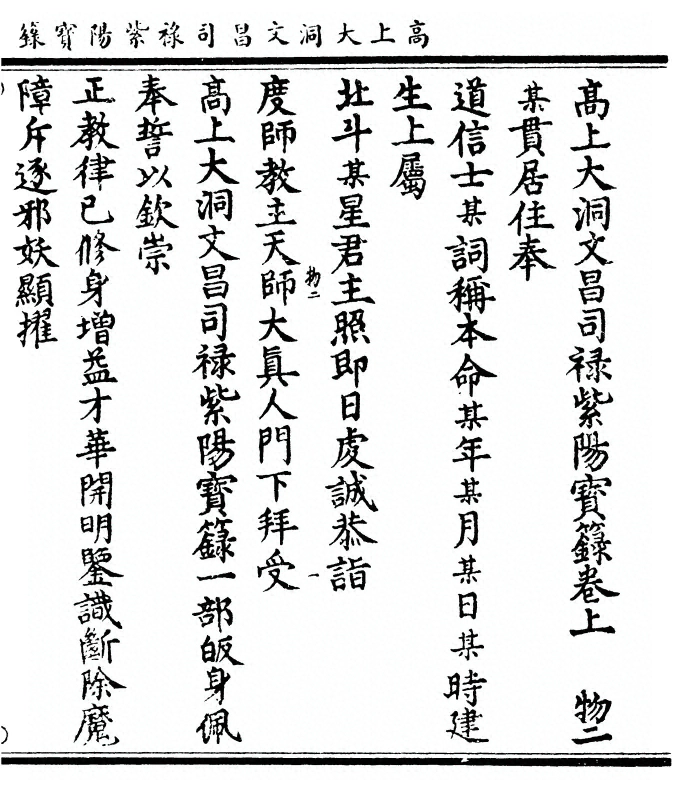 高上大洞文昌司祿紫陽寶籙
高上大洞文昌司祿紫陽寶籙卷上 物二
某貫居住奉
道信士某詞稱本命某年某月某日某時建
生上屬
北斗某星君主照即日虔誠恭詣
度師教主天師大眞人門下拜受
物二 一
高上大洞文昌司祿紫陽寶籙一部皈身佩
奉誓以欽崇
正教律已修身增益才華開明鑒識斷除魔
障斥逐邪妖顯擢